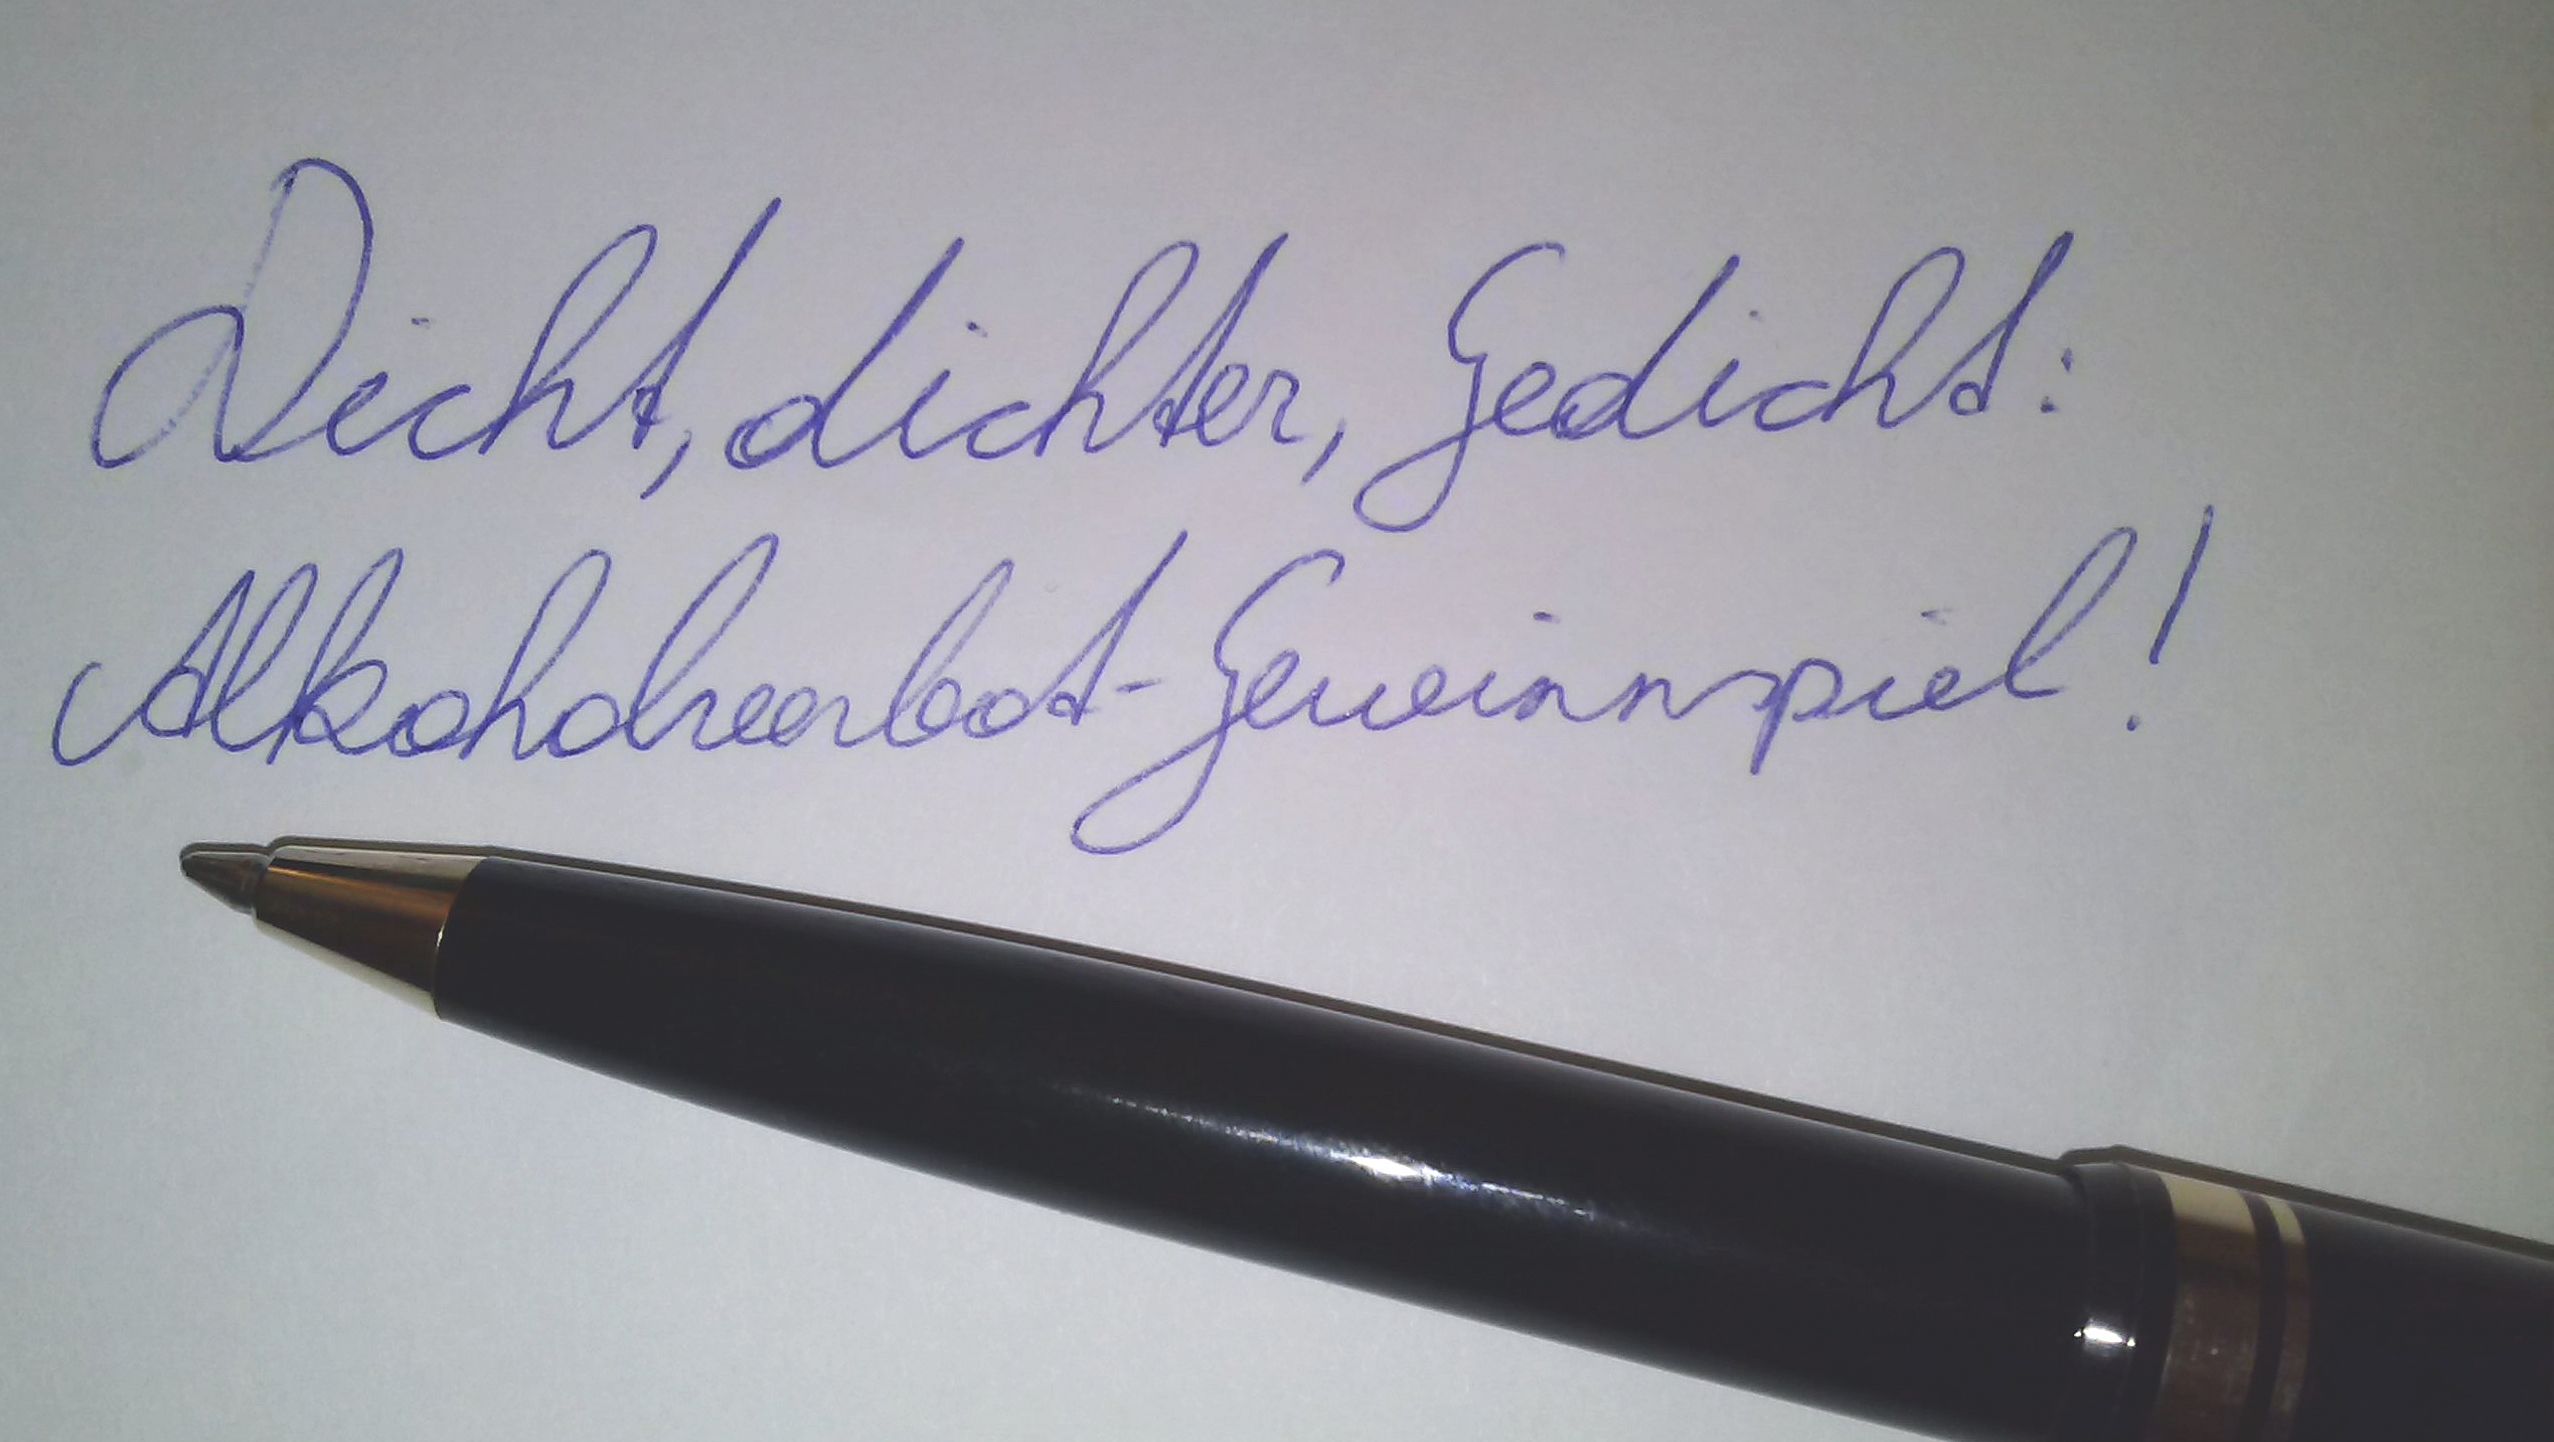 Dicht, dichter, Gedicht:
Alkoholverbot-Gewinnspiel!